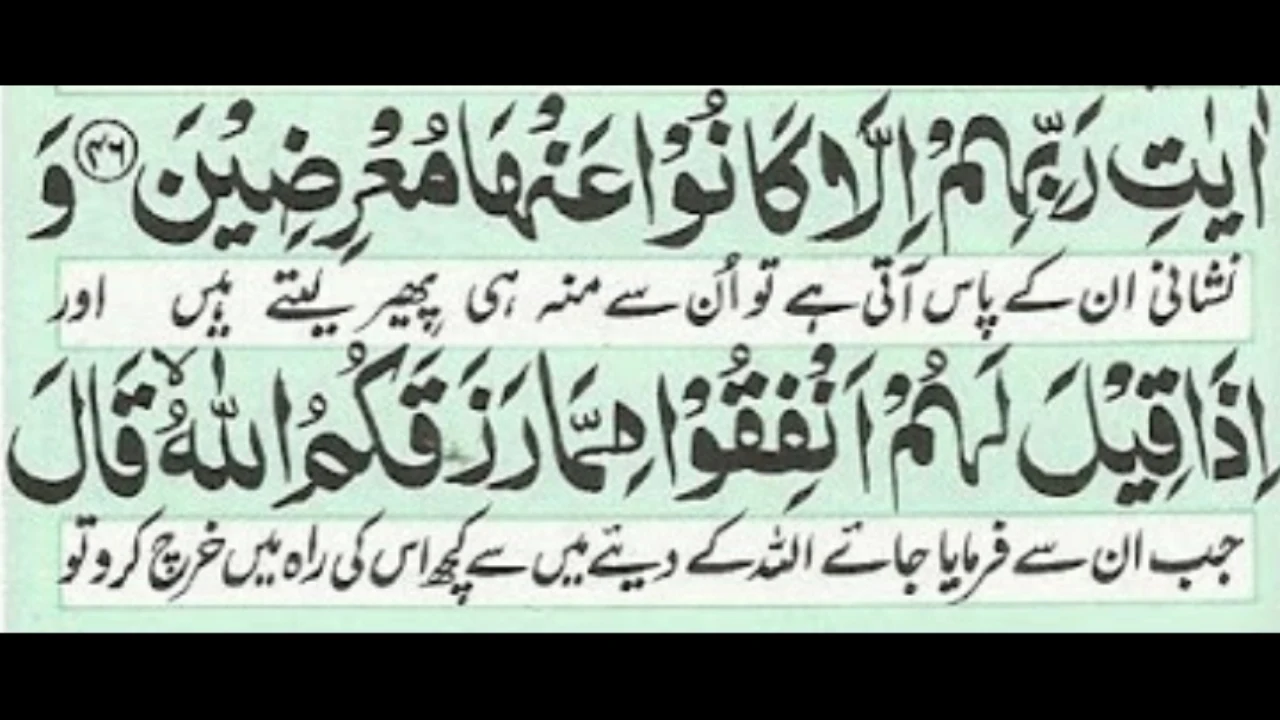 اٰیٰتِ رَبِّهِمْ اِلَّا كَانُوْا عَنْهَا مُعْرِضِیْنَ ﴿۴۶﴾ وَ
نشانی ان کے پاس آتی ہے تو اُن سے منہ ہی پھیر لیتے ہیں اور
اِذَا قِیْلَ لَهُمْ اَنْفِقُوْا مِمَّا رَزَقَكُمُ اللّٰهُ ۙ قَالَ
جب ان سے فرمایا جائے اللہ کے دیئے میں سے کچھ اس کی راہ میں خرچ کرو تو